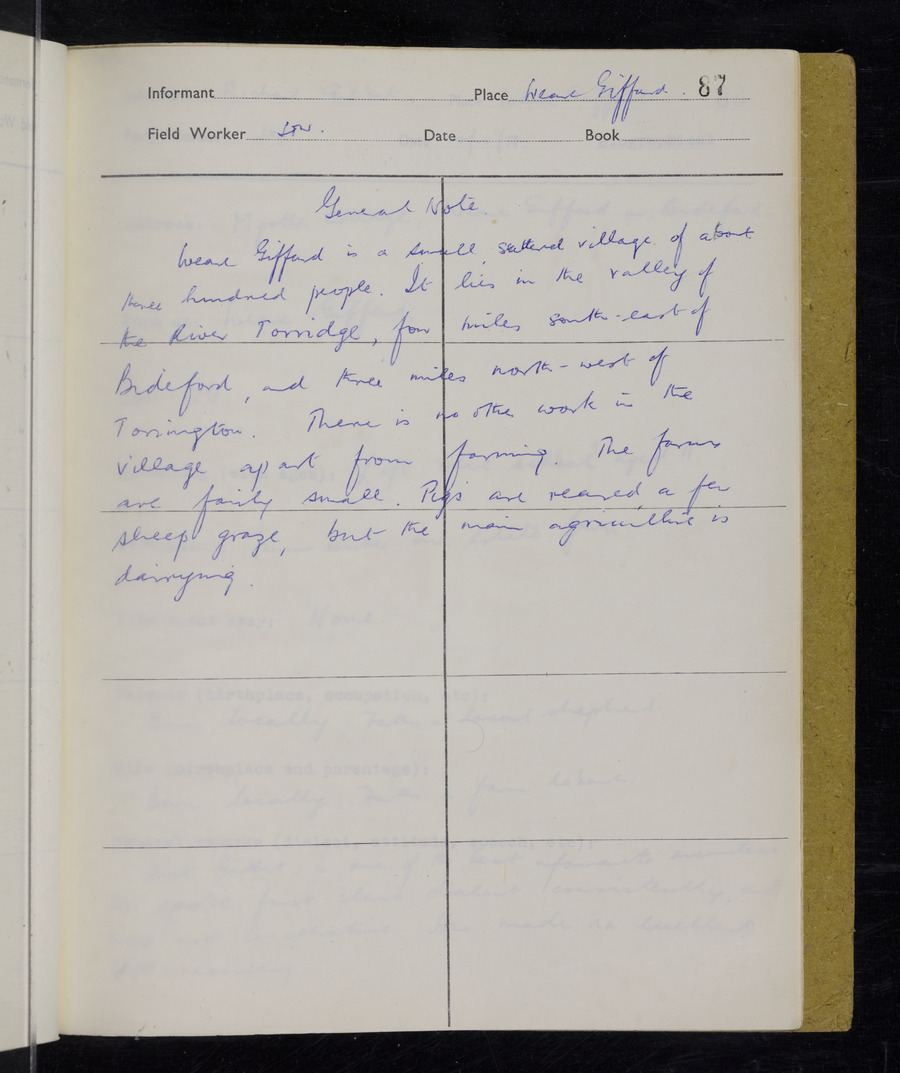 Informant Place Weare Giffard. 87
Field Worker Date Book
General Note.
Weare Giffard is a small, scattered village of about
three hundred people. It lies in the valley of
the River Torridge, four miles south-east of
Bideford, and three miles north-west of
Torrington. There is no other work in the
village apart from farming. The farms
are fairly small. Pigs are reared a few
sheep graze, but the main agriculture is
dairying.